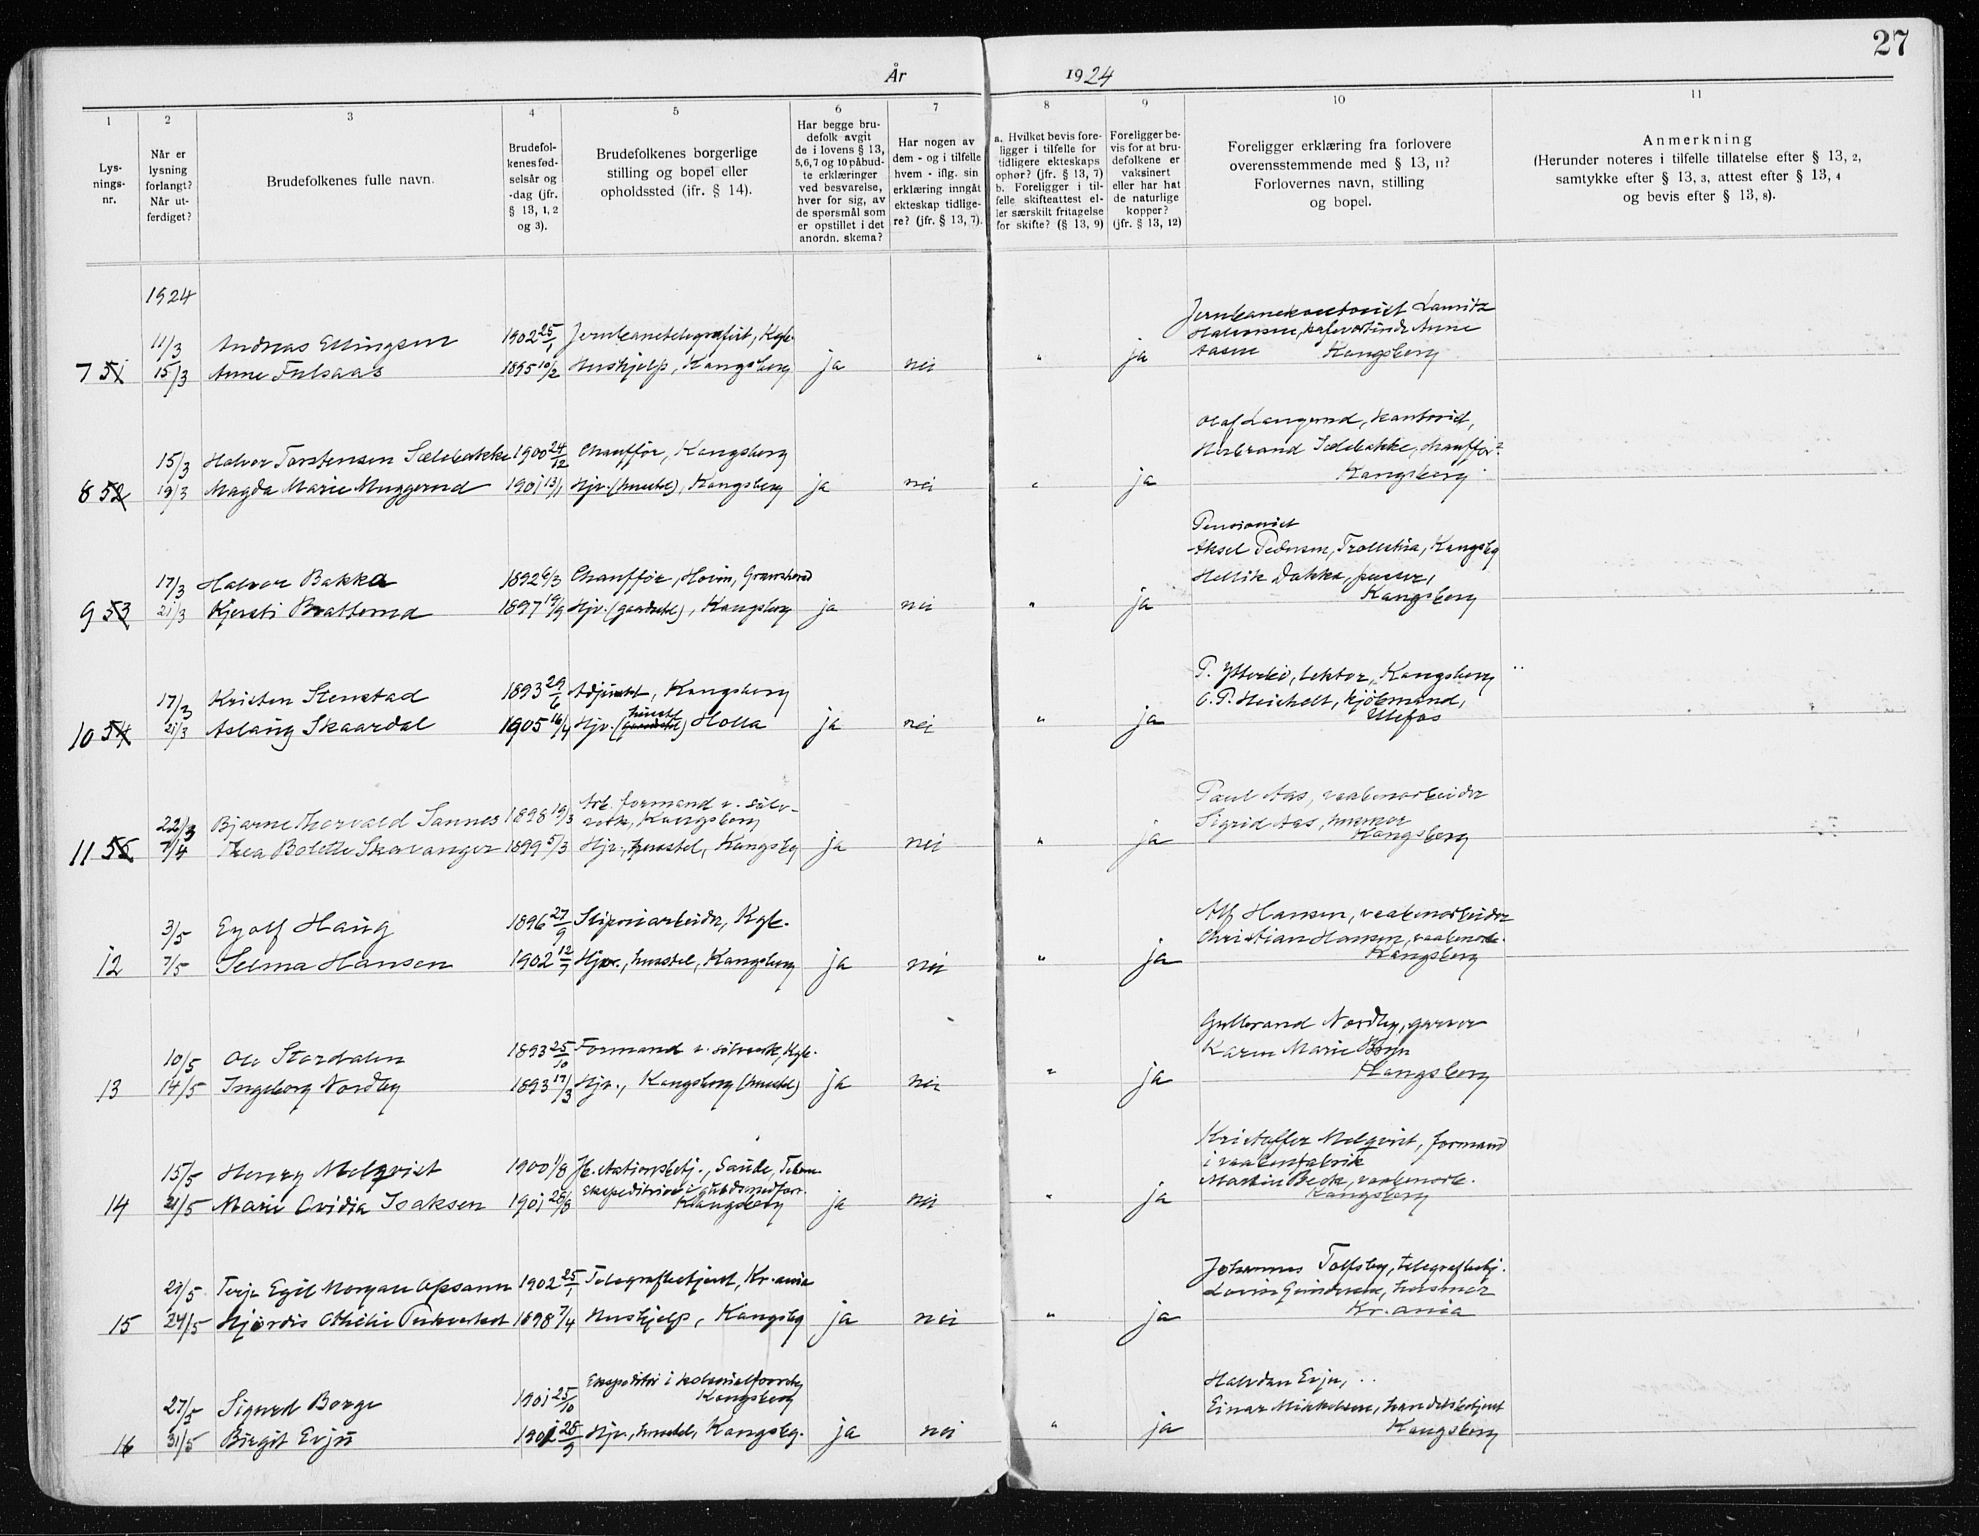 27
År 1924
1 2 3 4 5 6 7 8 9 10 11
Lys-
nings-
nr.
Når er
lysning
forlangt?
Når ut-
ferdiget?
Brudefolkenes fulle navn.
Brudefol-
kenes fød-
selsår og
-dag (jfr.
§ 13, 1, 2
og 3).
Brudefolkenes borgerlige
stilling og bopel eller
opholdssted (jfr. § 14).
Har begge bru-
defolk avgit
de i lovens § 13,
5, 6, 7 og 10 påbud-
te erklæringer
ved besvarelse,
hver for sig, av
de spørsmål som
er opstillet i det
anordn. skema?
Har nogen av
dem - og i tilfelle
hvem - iflg. sin
erklæring inngått
ekteskap tidlige-
re? (jfr. § 13, 7).
a. Hvilket bevis fore-
ligger i tilfelle for
tidligere ekteskaps
ophør? (jfr. § 13, 7)
b. Foreligger i til-
felle skifteattest el-
ler særskilt fritagelse
for skifte? (§ 13, 9)
Foreligger be-
vis for at bru-
defolkene er
vaksinert
eller har hat
de naturlige
kopper?
(jfr. § 13, 12)
Foreligger erklæring fra forlovere
overensstemmende med § 13, 11?
Forlovernes navn, stilling
og bopel.
Anmerkning
(Herunder noteres i tilfelle tillatelse efter § 13, 2,
samtykke efter § 13, 3, attest efter § 13, 4
og bevis efter § 13, 8).
1924
Lauritz
11/3 Andreas Ellingsen 1902 25/1 Jernbanetelegrafist, Kgb. Halvorsen, Anne
7 51 15/3 Anne Fulsaas 1895 10/2 Hushjelp, Kongsberg ja nei " ja Aasen Kongsberg
Olaf Langerud, kontorist,
15/3 Halvor Torstensen Sælebakke 1900 24/12 Chauffør, Kongsberg Herbrand Sælebakke, chauffør
8 52 19/3 Magda Marie Muggerud 1901 13/1 Hjv. (husstel), Kongsberg ja nei " ja Kongsberg
Pensionist
Aksel Pedersen, Kongsbg
17/3 Halvor Bakka 1892 6/3 Chauffør, Hovin, Gransherad Hellik Bakka,
9 53 21/3 Kjersti Bratterud 1897 19/9 Hjv. (gardsstel), Kongsberg ja nei " ja Kongsberg
P. Ytterbø, lektor, Kongsberg
17/3 Kristen Stenstad 1893 29/6 Adjunkt, Kongsberg O. P. Heicholt, kjøbmand,
10 54 21/3 Aslaug Skaardal 1905 16/4 Hjv. (husstel) Holla ja nei " ja Ulefos
Paul Aas, vaabenarbeider
22/3 Bjarne Thorvald Sannes 1898 19/3 Arb. formand v. sølv-
verk, Kongsberg Sigrid Aas, husmor
11 55 7/4 Thea Bolette Skavanger 1899 5/3 Hjv., husstel, Kongsbg ja nei " ja Kongsberg
Alf Hansen, vaabenarbeider
3/5 Eyolf Haug 1896 27/9 Sliperiarbeider, Kgb. Christian Hansen, vaabenarb.
12 7/5 Selma Hansen 1902 12/7 Hjv., husstel, Kongsberg ja nei " ja Kongsberg
Gulbrand Nordby, garver
10/5 Ole Stordalen 1893 25/10 Formand v. sølverk, Kgb. Karen Marie
13 14/5 Ingeborg Nordby 1893 17/3 Hjv., Kongsberg (husstel) ja nei " ja Kongsberg
Kristoffer Melqvist, formand
15/5 Henry Melqvist 1900 1/8 J. stationsbetj., Saude, Telem. i vaabenfabrik
Ekspeditrise i guldsmedforr. Martin Beck, vaabenarb.
14 21/5 Marie Ovidia Isaksen 1901 26/8 Kongsberg ja nei " ja Kongsberg
Johannes Tolfsby, telegrafbetj.
20/5 Terje Egil Morgan Apsann 1902 25/1 Telegrafbetjent, Kr.ania Lovise Gundersen, husmor
15 24/5 Hjørdis Othilie 1898 7/4 Hushjelp, Kongsbg ja nei " ja Kr.ania
Ekspeditør i kolonialforretn. Halvdan Evju,
27/5 Sigurd Borge 1901 25/10 Kongsberg Einar Mikkelsen, handelsbetjent
16 31/5 Birgit Evju 1901 28/9 Hjv., husstel, Kongsbg. ja nei " ja Kongsberg